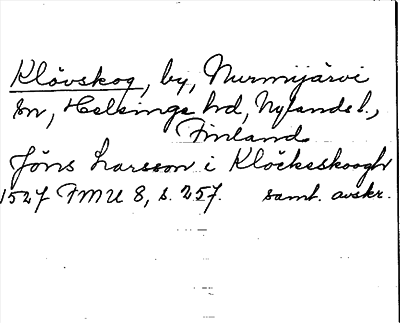 Klövskog, by, Nurmijärvi
sn, Helsinge hd, Nylands l.,
Finland
Jöns Larsson i Klöckeskoogh
1527 FMU 8, s. 257. samt. avskr.